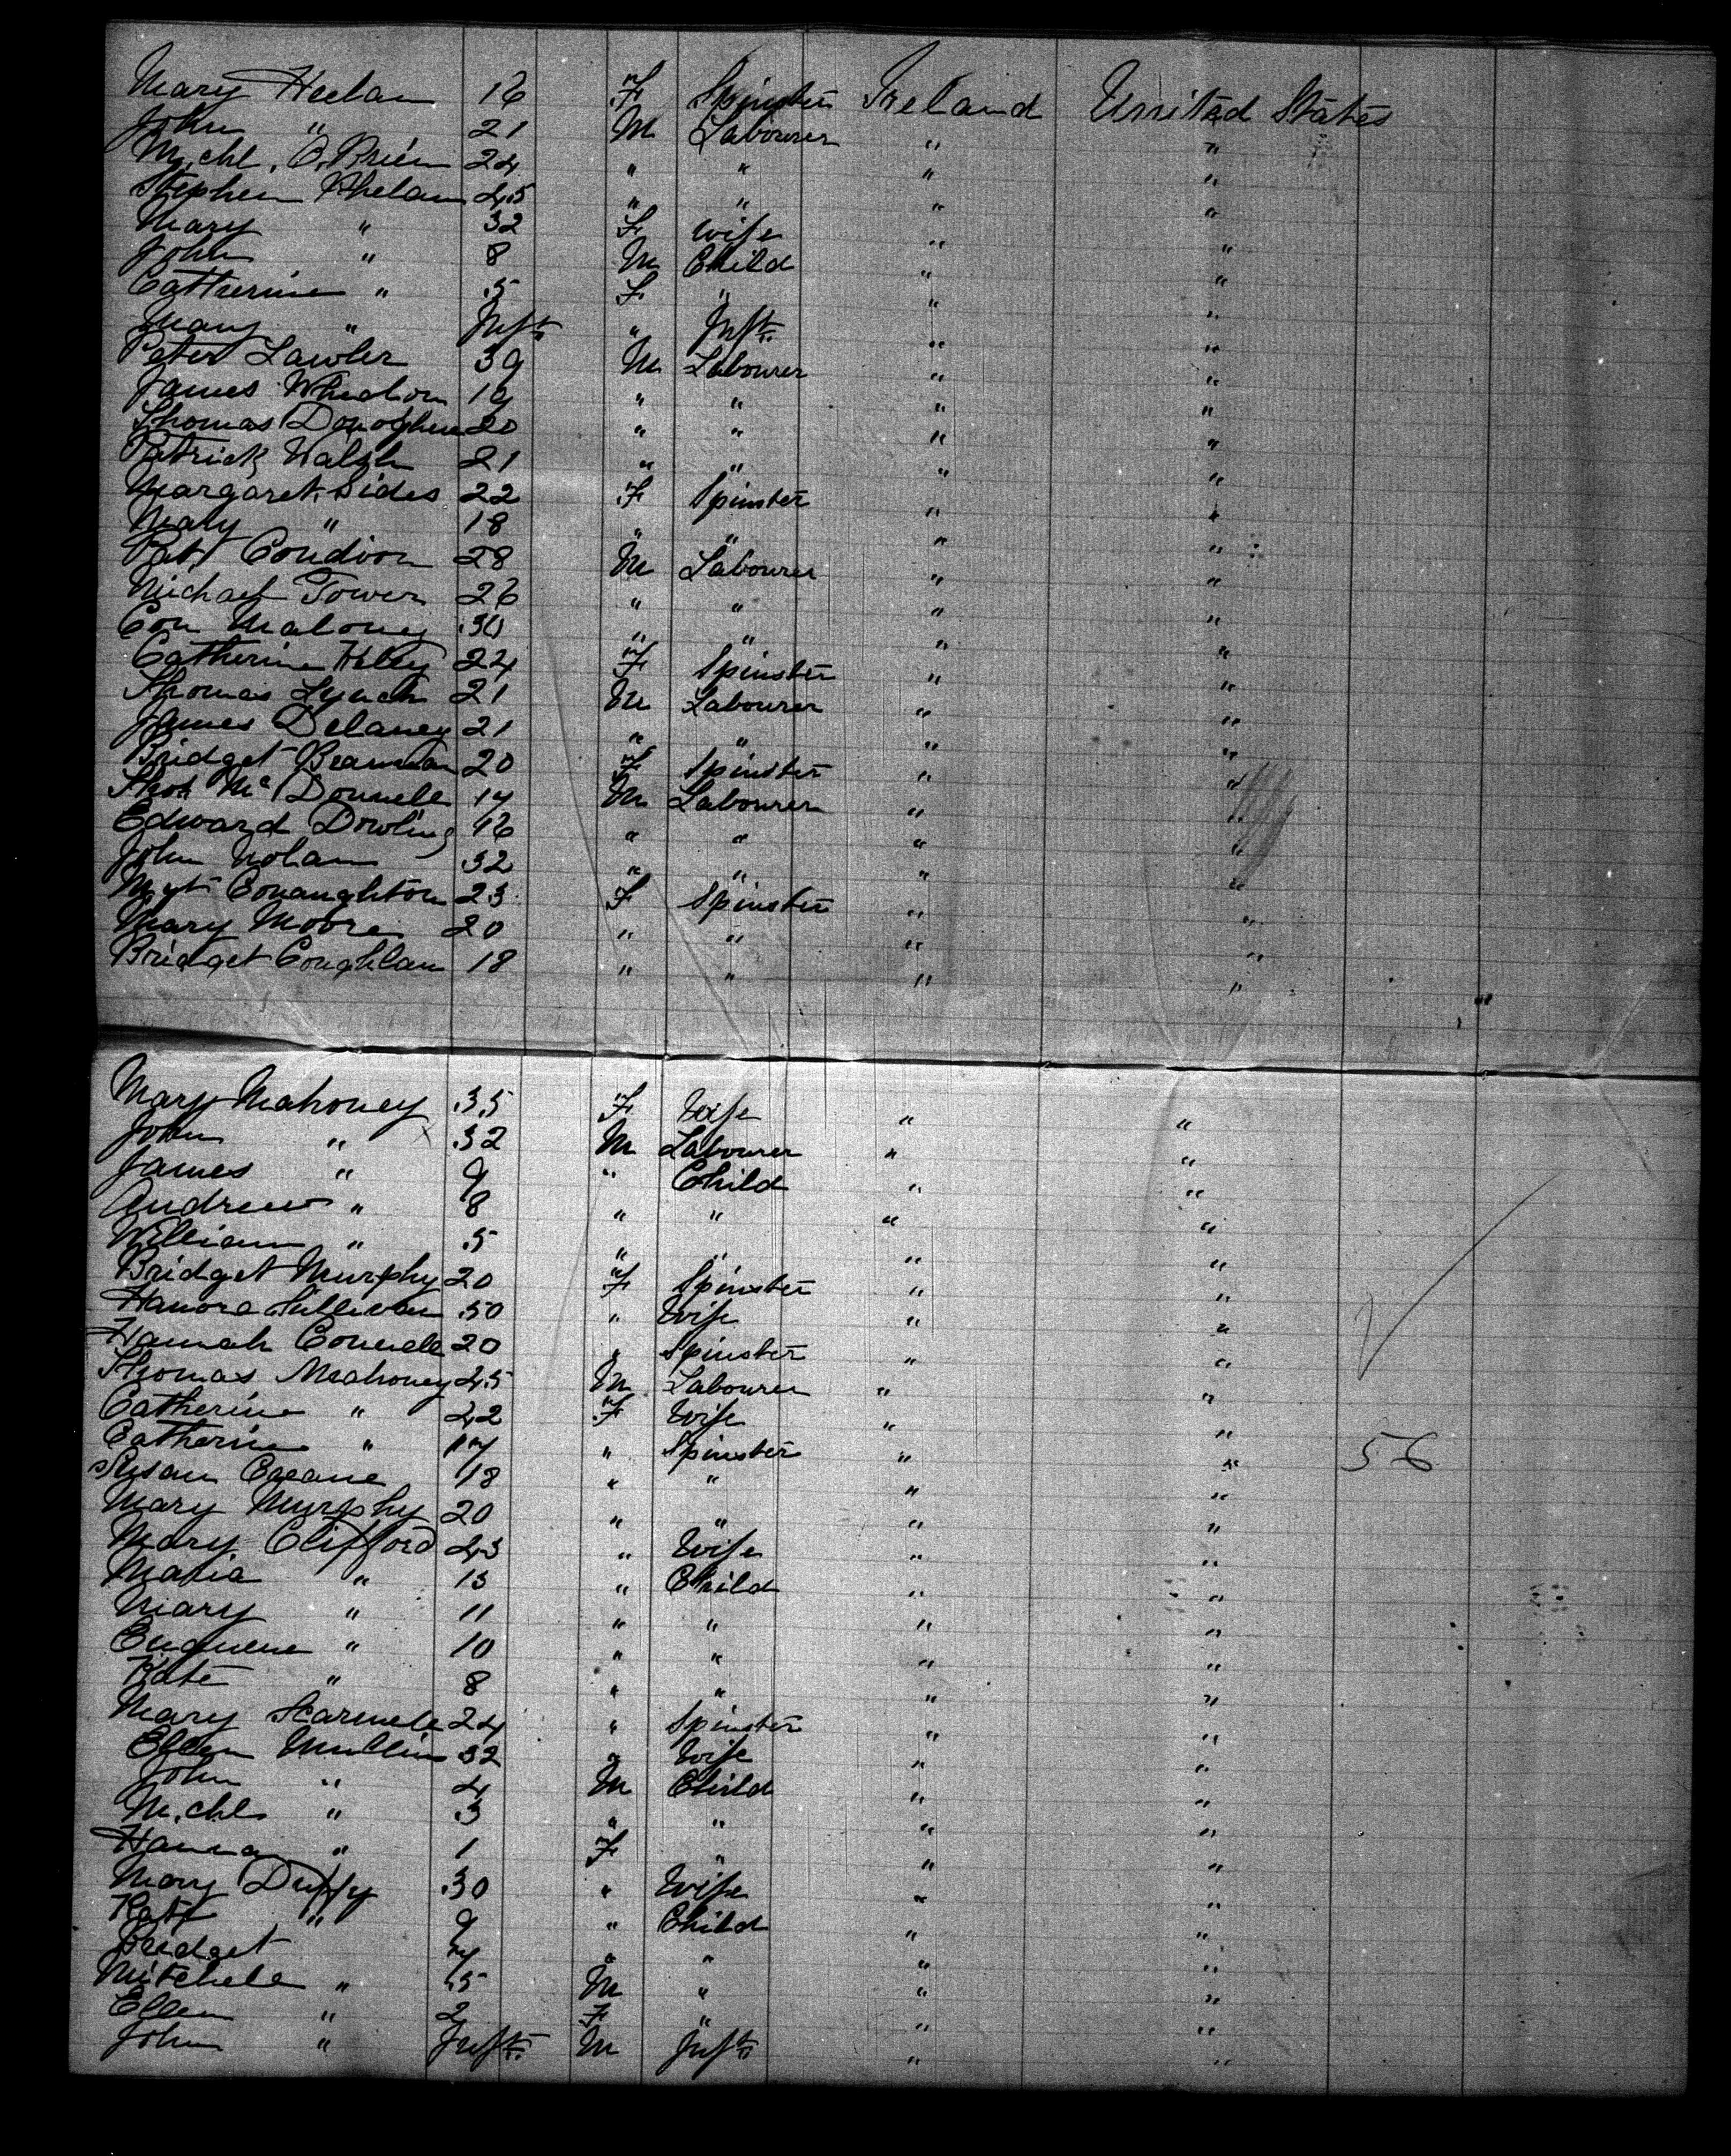 Mary Heelan 16 F Spinster Ireland United States
John " 21 M Labourer " "
Michl. O'Brien 24 " " " "
Stephen Whelan 45 " " " "
Mary " 32 F Wife " "
John " 8 M Child " "
Catherine " 5 F " " "
Mary " Inft. " Inft. " "
Peter Lawler 39 M Labourer " "
James 19 " " " "
Thomas Donoghue 20 " " " "
Patrick Walsh 21 " " " "
Margaret Sides 22 F Spinster " "
Mary " 18 " " " "
Patt Condon 28 M Labourer " "
Michael Tower 26 " " " "
Con Maloney 30 " " " "
Catherine 24 F Spinster " "
Thomas Lynch 21 M Labourer " "
James Delaney 21 " " " "
Bridget 20 F Spinster " "
Thos McDonnell 17 M Labourer " "
Edward Dowling 46 " " " "
John Nolan 32 " " " "
Mgt Conaughton 23 F Spinster " "
Mary Moore 20 " " " "
Bridget Coughlan 18 " " " "
Mary Mahoney 35 F Wife " "
John " 32 M Labourer " "
James " 9 " Child " "
Andrew " 8 " " " "
William " 5 " " " "
Bridget Murphy 20 F Spinster " "
Hanora Sullivan 50 " Wife " "
Hannah Connell 20 " Spinster " "
Thomas Mahoney 45 M Labourer " "
Catherine " 42 F Wife " "
Catherine " 17 " Spinster " " 56
Susan 18 " " " "
Mary Murphy 20 " " " "
Mary Clifford 43 " Wife " "
Maria " 13 " Child " "
Mary " 11 " " " "
Euguene " 10 " " " "
Kate " 8 " " " "
Mary 24 " Spinster " "
Ellen Mullin 32 " Wife " "
John " 4 M Child " "
Michl " 3 " " " "
Hannan " 1 F " " "
Mary Duffy 30 " Wife " "
Kate " 9 " Child " "
Bridget 7 " " " "
Mitchell " 5 M " " "
Ellen " 2 F " " "
John " Inft. M Inft. " "